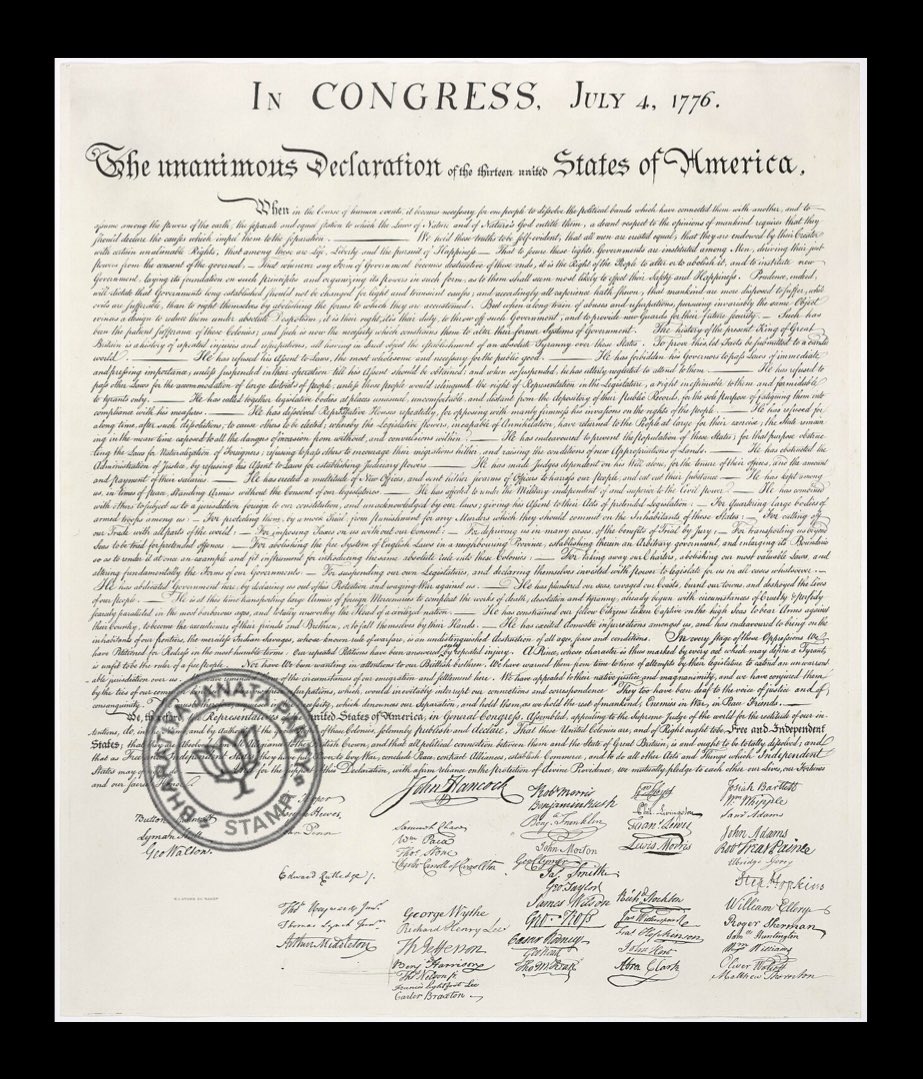 IN CONGRESS, JULY 4, 1776.
The unanimous Declaration of the thirteen united States of America,
When in the Course of human events, it becomes necessary for one people to dissolve the political bands which have connected them with another, and to
assume among the powers of the earth, the separate and equal station to which the Laws of Nature and of Nature's God entitle them, a decent respect to the opinions of mankind requires that they
should declare the causes which impel them to the separation. — We hold these truths to be self-evident, that all men are created equal, that they are endowed by their Creator
with certain unalienable Rights, that among these are Life, Liberty and the pursuit of Happiness. — That to secure these rights, Governments are instituted among Men, deriving their just
powers from the consent of the governed, — That whenever any Form of Government becomes destructive of these ends, it is the Right of the People to alter or to abolish it, and to institute new
Government, laying its foundation on such principles and organizing its powers in such form, as to them shall seem most likely to effect their Safety and Happiness. Prudence, indeed,
will dictate that Governments long established should not be changed for light and transient causes; and accordingly all experience hath shewn, that mankind are more disposed to suffer, while
evils are sufferable, than to right themselves by abolishing the forms to which they are accustomed. But when a long train of abuses and usurpations, pursuing invariably the same Object
evinces a design to reduce them under absolute Despotism, it is their right, it is their duty, to throw off such Government, and to provide new Guards for their future security. — Such has
been the patient sufferance of these Colonies; and such is now the necessity which constrains them to alter their former Systems of Government. The history of the present King of Great
Britain is a history of repeated injuries and usurpations, all having in direct object the establishment of an absolute Tyranny over these States. To prove this, let Facts be submitted to a candid
world. — He has refused his Assent to Laws, the most wholesome and necessary for the public good. — He has forbidden his Governors to pass Laws of immediate
and pressing importance, unless suspended in their operation till his Assent should be obtained; and when so suspended, he has utterly neglected to attend to them. — He has refused to
pass other Laws for the accommodation of large districts of people, unless those people would relinquish the right of Representation in the Legislature, a right inestimable to them and formidable
to tyrants only. — He has called together legislative bodies at places unusual, uncomfortable, and distant from the depository of their Public Records, for the sole purpose of fatiguing them into
compliance with his measures. — He has dissolved Representative Houses repeatedly, for opposing with manly firmness his invasions on the rights of the people. — He has refused for
a long time, after such dissolutions, to cause others to be elected; whereby the Legislative powers, incapable of Annihilation, have returned to the People at large for their exercise; the State remain
ing in the mean time exposed to all the dangers of invasion from without, and convulsions within. — He has endeavoured to prevent the population of these States; for that purpose obstruc
ting the Laws for Naturalization of Foreigners; refusing to pass others to encourage their migrations hither, and raising the conditions of new Appropriations of Lands. — He has obstructed the
Administration of Justice, by refusing his Assent to Laws for establishing Judiciary powers. — He has made Judges dependent on his Will alone, for the tenure of their offices, and the amount
and payment of their salaries. — He has erected a multitude of New Offices, and sent hither swarms of Officers to harrass our people, and eat out their substance. — He has kept among
us, in times of peace, Standing Armies without the Consent of our legislatures. — He has affected to render the Military independent of and superior to the Civil power. — He has combined
with others to subject us to a jurisdiction foreign to our constitution, and unacknowledged by our laws; giving his Assent to their Acts of pretended Legislation: — For Quartering large bodies of
armed troops among us: — For protecting them, by a mock Trial, from punishment for any Murders which they should commit on the Inhabitants of these States: — For cutting off
our Trade with all parts of the world: — For imposing Taxes on us without our Consent: — For depriving us in many cases, of the benefits of Trial by Jury: — For transporting us beyond
Seas to be tried for pretended offences: — For abolishing the free System of English Laws in a neighbouring Province, establishing therein an Arbitrary government, and enlarging its Boundaries
so as to render it at once an example and fit instrument for introducing the same absolute rule into these Colonies: — For taking away our Charters, abolishing our most valuable Laws, and
altering fundamentally the Forms of our Governments: — For suspending our own Legislatures, and declaring themselves invested with power to legislate for us in all cases whatsoever. —
He has abdicated Government here, by declaring us out of his Protection and waging War against us. — He has plundered our seas, ravaged our Coasts, burnt our towns, and destroyed the lives
of our people. — He is at this time transporting large Armies of foreign Mercenaries to compleat the works of death, desolation and tyranny, already begun with circumstances of Cruelty & perfidy
scarcely paralleled in the most barbarous ages, and totally unworthy the Head of a civilized nation. — He has constrained our fellow Citizens taken Captive on the high Seas to bear Arms against
their Country, to become the executioners of their friends and Brethren, or to fall themselves by their Hands. — He has excited domestic insurrections amongst us, and has endeavoured to bring on the
inhabitants of our frontiers, the merciless Indian Savages, whose known rule of warfare, is an undistinguished destruction of all ages, sexes and conditions. In every stage of these Oppressions We
have Petitioned for Redress in the most humble terms: Our repeated Petitions have been answered only by repeated injury. A Prince, whose character is thus marked by every act which may define a Tyrant,
is unfit to be the ruler of a free people. Nor have We been wanting in attentions to our Brittish brethren. We have warned them from time to time of attempts by their legislature to extend an unwarrant
able jurisdiction over us. We have reminded them of the circumstances of our emigration and settlement here. We have appealed to their native justice and magnanimity, and we have conjured them
by the ties of our common usurpations, which, would inevitably interrupt our connections and correspondence. They too have been deaf to the voice of justice and of
consanguinity. necessity, which denounces our Separation, and hold them, as we hold the rest of mankind, Enemies in War, in Peace Friends. —
We, therefore, the Representatives of the united States of America, in General Congress, Assembled, appealing to the Supreme Judge of the world for the rectitude of our in-
tentions, do, in the and by Authority of the of these Colonies, solemnly publish and declare, That these United Colonies are, and of Right ought to be Free and Independent
States; that they are Absolved British Crown, and that all political connection between them and the State of Great Britain, is and ought to be totally dissolved; and
that as Free and Independent States, they to levy War, conclude Peace, contract Alliances, establish Commerce, and to do all other Acts and Things which Independent
States may of for the of this Declaration, with a firm reliance on the protection of divine Providence, we mutually pledge to each other our Lives, our Fortunes
and our sacred Honor.
BHARATIYA JANATA PARTY
STAMP
Button Gwinnett
Lyman Hall
Geo Walton.
Joseph Hewes,
John Penn
Edward Rutledge /.
Thos Heyward Junr.
Thomas Lynch Junr.
Arthur Middleton
John Hancock
Samuel Chase
Wm Paca
Thos Stone
Charles Carroll of Carrollton
George Wythe
Richard Henry Lee
Th Jefferson
Benj Harrison
Thos Nelson jr.
Francis Lightfoot Lee
Carter Braxton
Robt Morris
Benjamin Rush
Benj. Franklin
John Morton
Geo Clymer
Jas. Smith
Geo. Taylor
James Wilson
Geo. Ross
Caesar Rodney
Geo Read
Tho M:Kean
Wm Floyd
Phil. Livingston
Frans. Lewis
Lewis Morris
Richd. Stockton
Jno Witherspoon
Fras. Hopkinson
John Hart
Abra Clark
Josiah Bartlett
Wm Whipple
Saml Adams
John Adams
Robt Treat Paine
Elbridge Gerry
Step. Hopkins
William Ellery
Roger Sherman
Saml Huntington
Wm Williams
Oliver Wolcott
Matthew Thornton